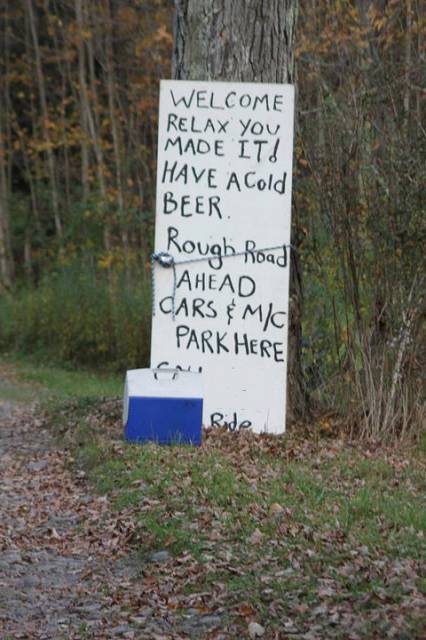 WELCOME
RELAX YOU
MADE IT!
HAVE A Cold
BEER.
Rough Road
AHEAD
CARS & M/C
PARK HERE
Ride